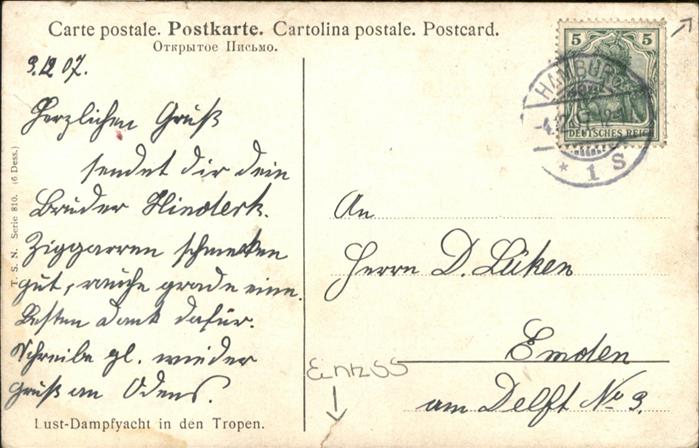 Carte postale. Postkarte. Cartolina postale. Postcard.
Открытое Письмо.
3.12.07.
Herzlichen Gruß
sendet dir dein
Bruder Hinderk.
Ziggarren schmecken
gut, rauche grade eine.
Besten Dank dafür.
Schreibe gl. wieder
Gruß an Odens.
Lust-Dampfyacht in den Tropen.
T. S. N. Serie 810. (6 Dess.)
5 5
DEUTSCHES REICH
HAMBURG
* 1 S
An
Herrn D. Lüken
Emden
am Delft No 3.